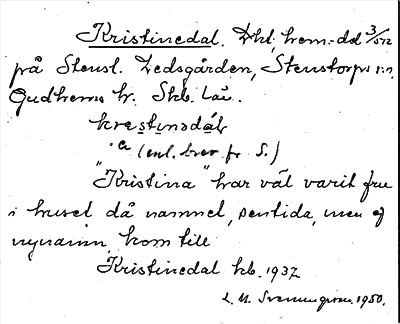 Kristinedal. Dht, hem.-dd 3/572
på Stenst. Ledsgården, Stenstorps sn,
Gudhems hr. Skb. län.
krestinadál
(enl. brev fr S.)
"Kristina" har väl varit fru
i huset då namnet, sentida, men ej
nynamn, kom till
Kristinedal kb. 1937
1950.